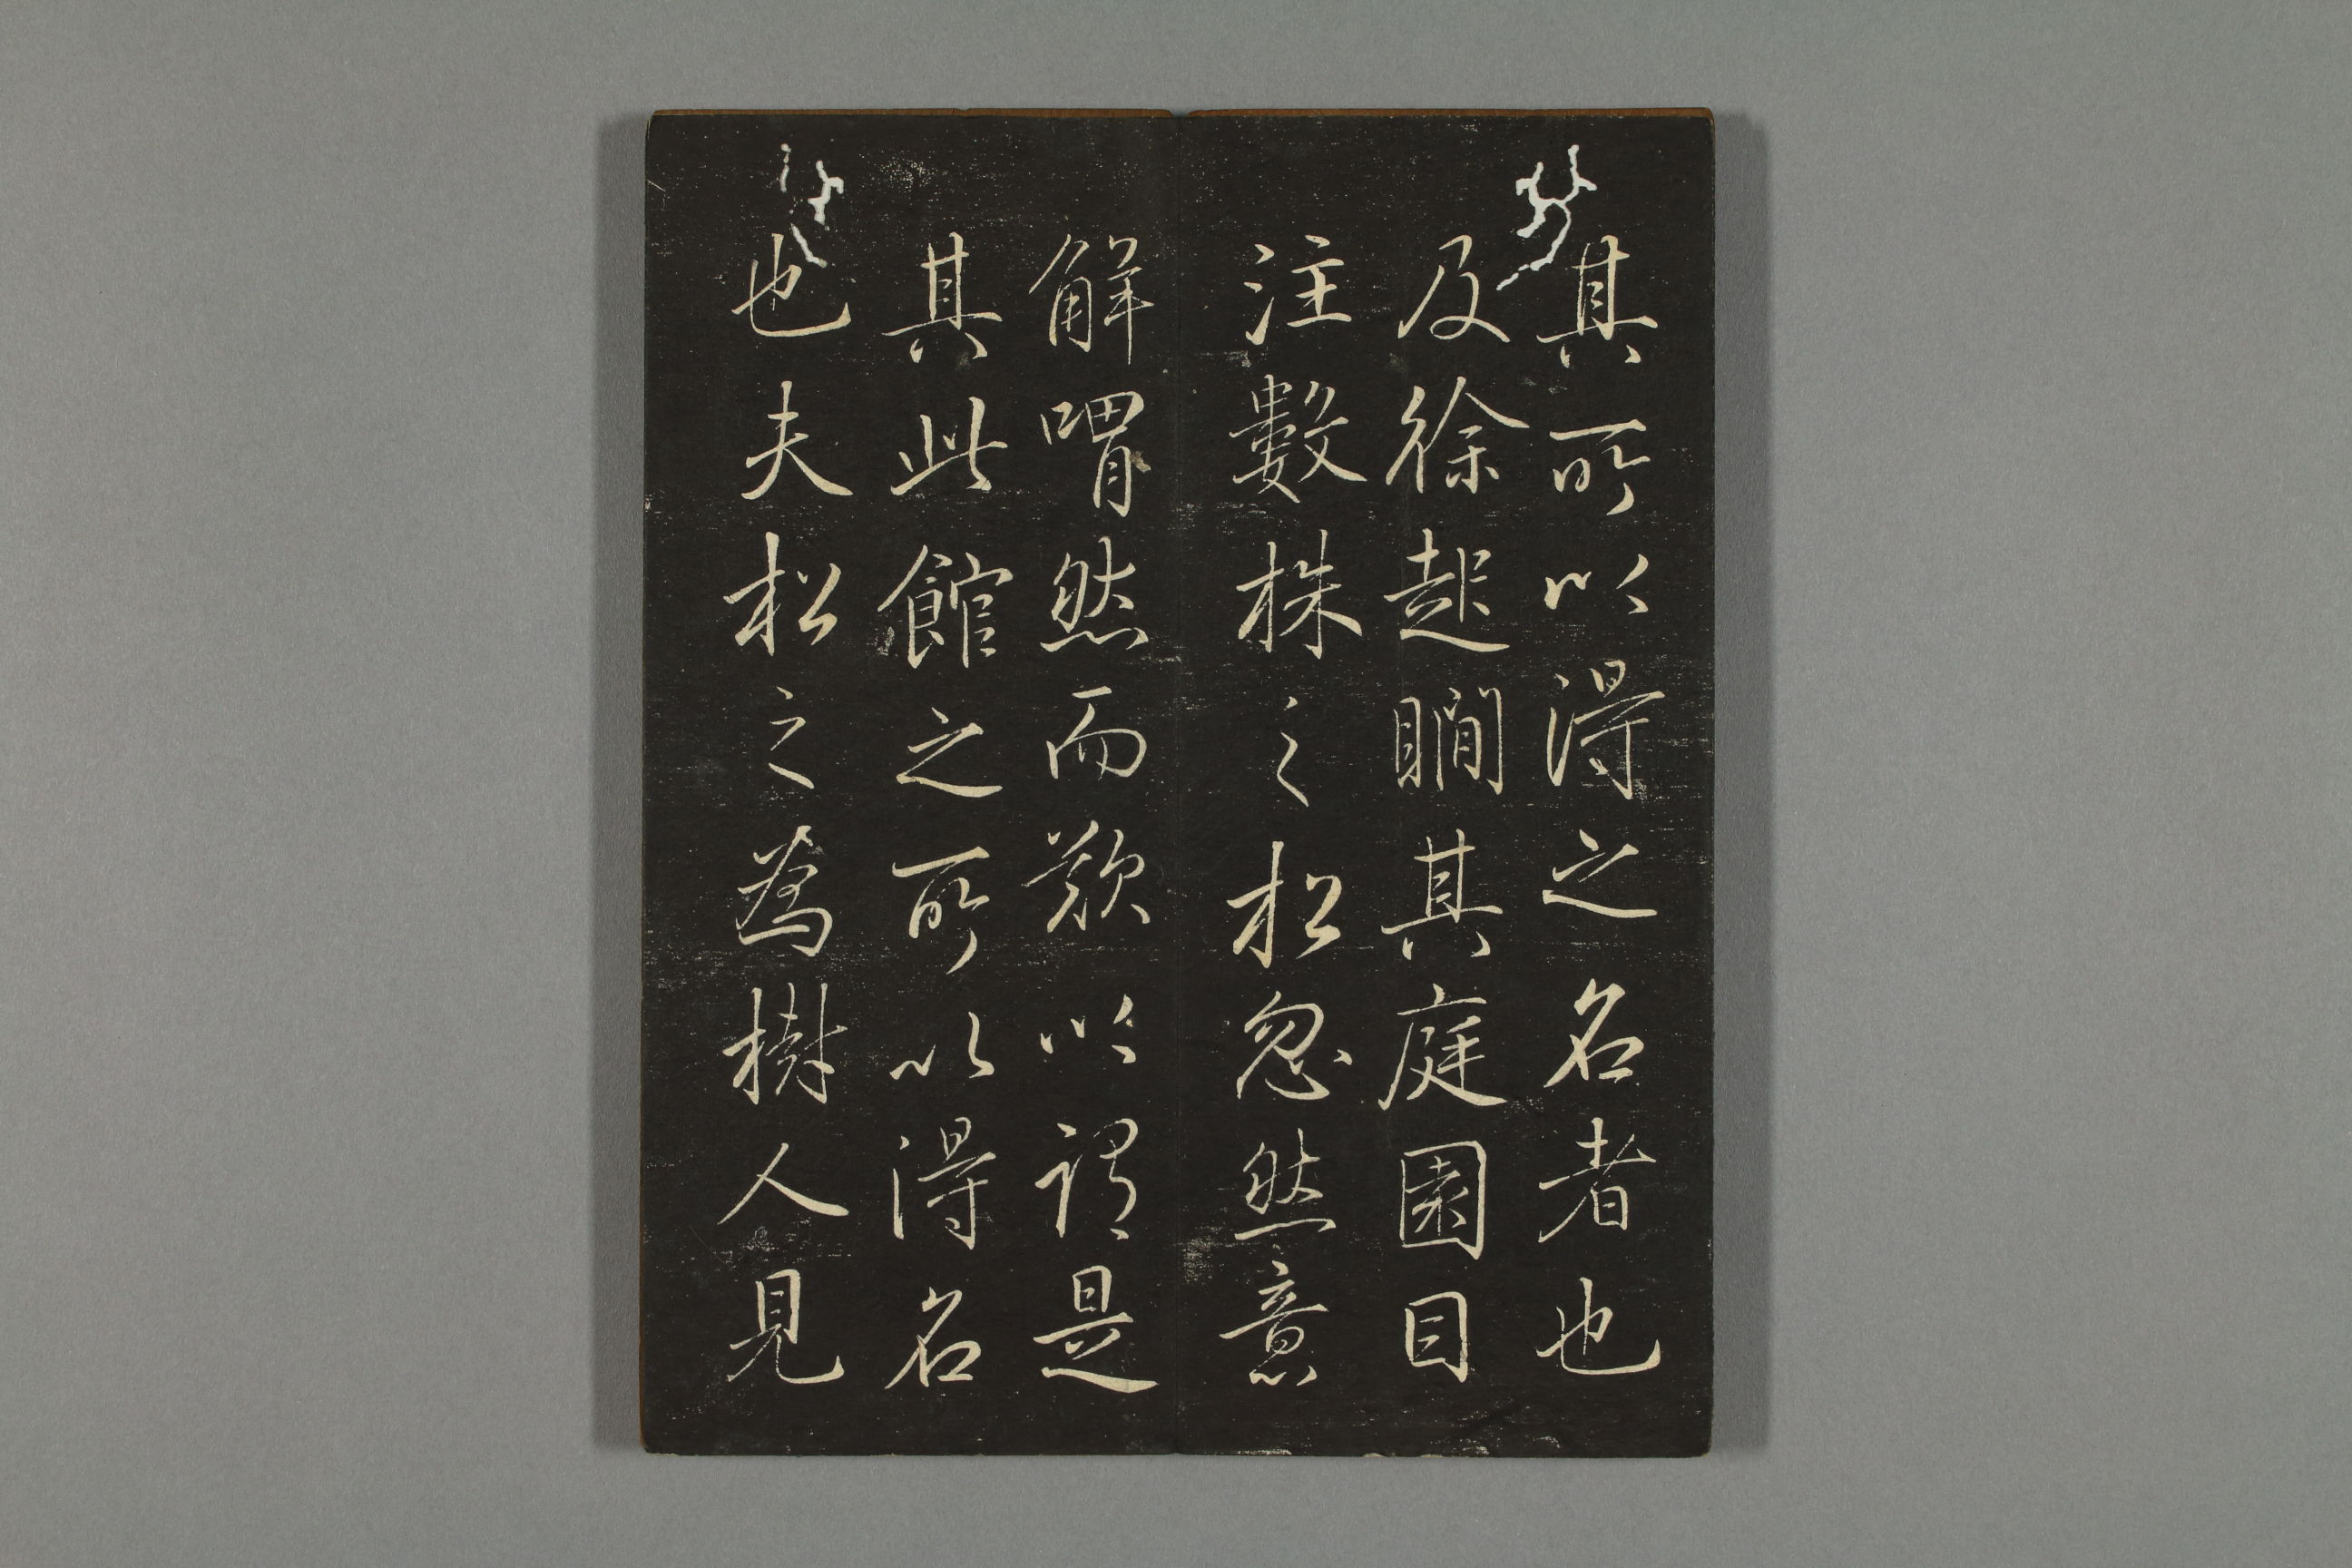 其所以得之名者也
及徐起瞷其庭園目
注數株之松忽然意
解喟然而歎以謂是
其此館之所以得名
也夫松之為樹人見